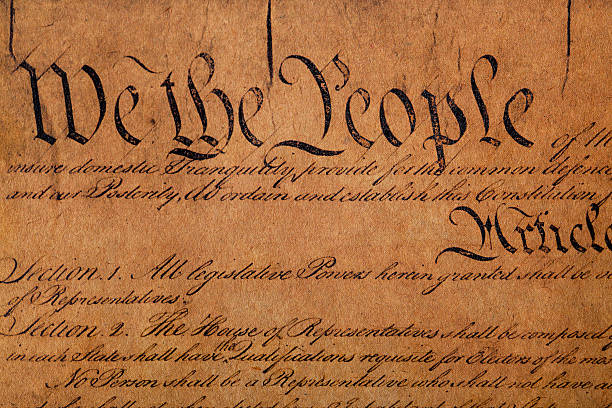 We the People of th
insure domestic Tranquility, provide for the common defence
and our Posterity, do ordain and establish this Constitution
Article
Section. 1. All legislative Powers herein granted shall be
of Representatives.
Section. 2. The House of Representatives shall be composed
in each State shall have the Qualifications requisite for Electors of the mos
No Person shall be a Representative who shall not have a